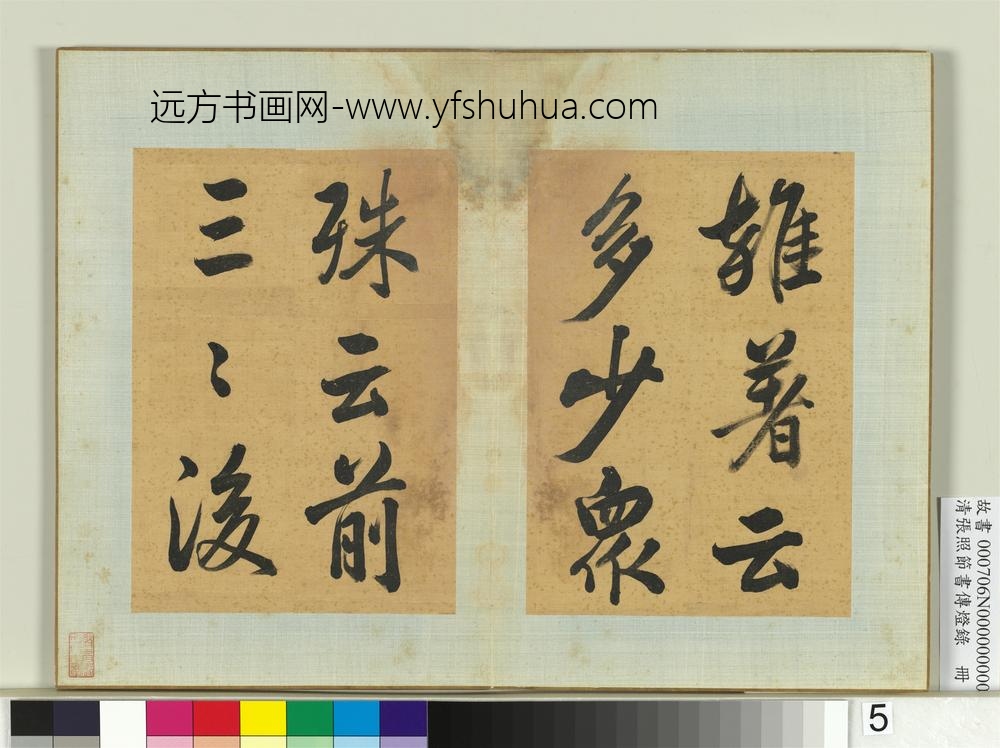 远方书画网-www.yfshuhua.com
雜著云
多少衆
殊云前
三〻後
故書 000706N000000000
清張照節書傳燈錄 冊
5